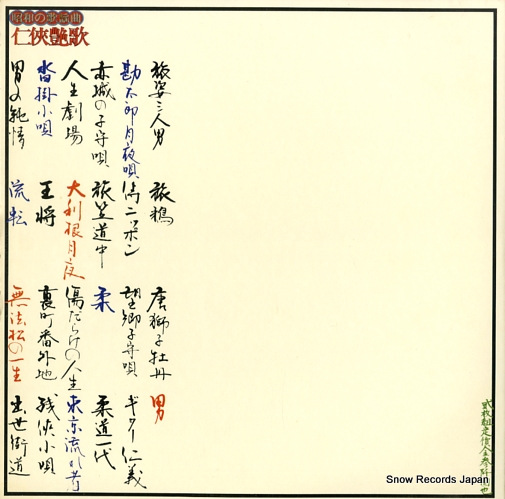 昭和の歌謡曲
仁俠艶歌
旅姿三人男
旅鴉
唐獅子牡丹
男
勘太郎月夜唄
流転
望郷子守唄
ギター仁義
赤城の子守唄
旅笠道中
柔
柔道一代
人生劇場
大利根月夜
傷だらけの人生
東京流れ者
沓掛小唄
王将
裏町番外地
残俠小唄
男の純情
流転
無法松の一生
出世街道
Snow Records Japan